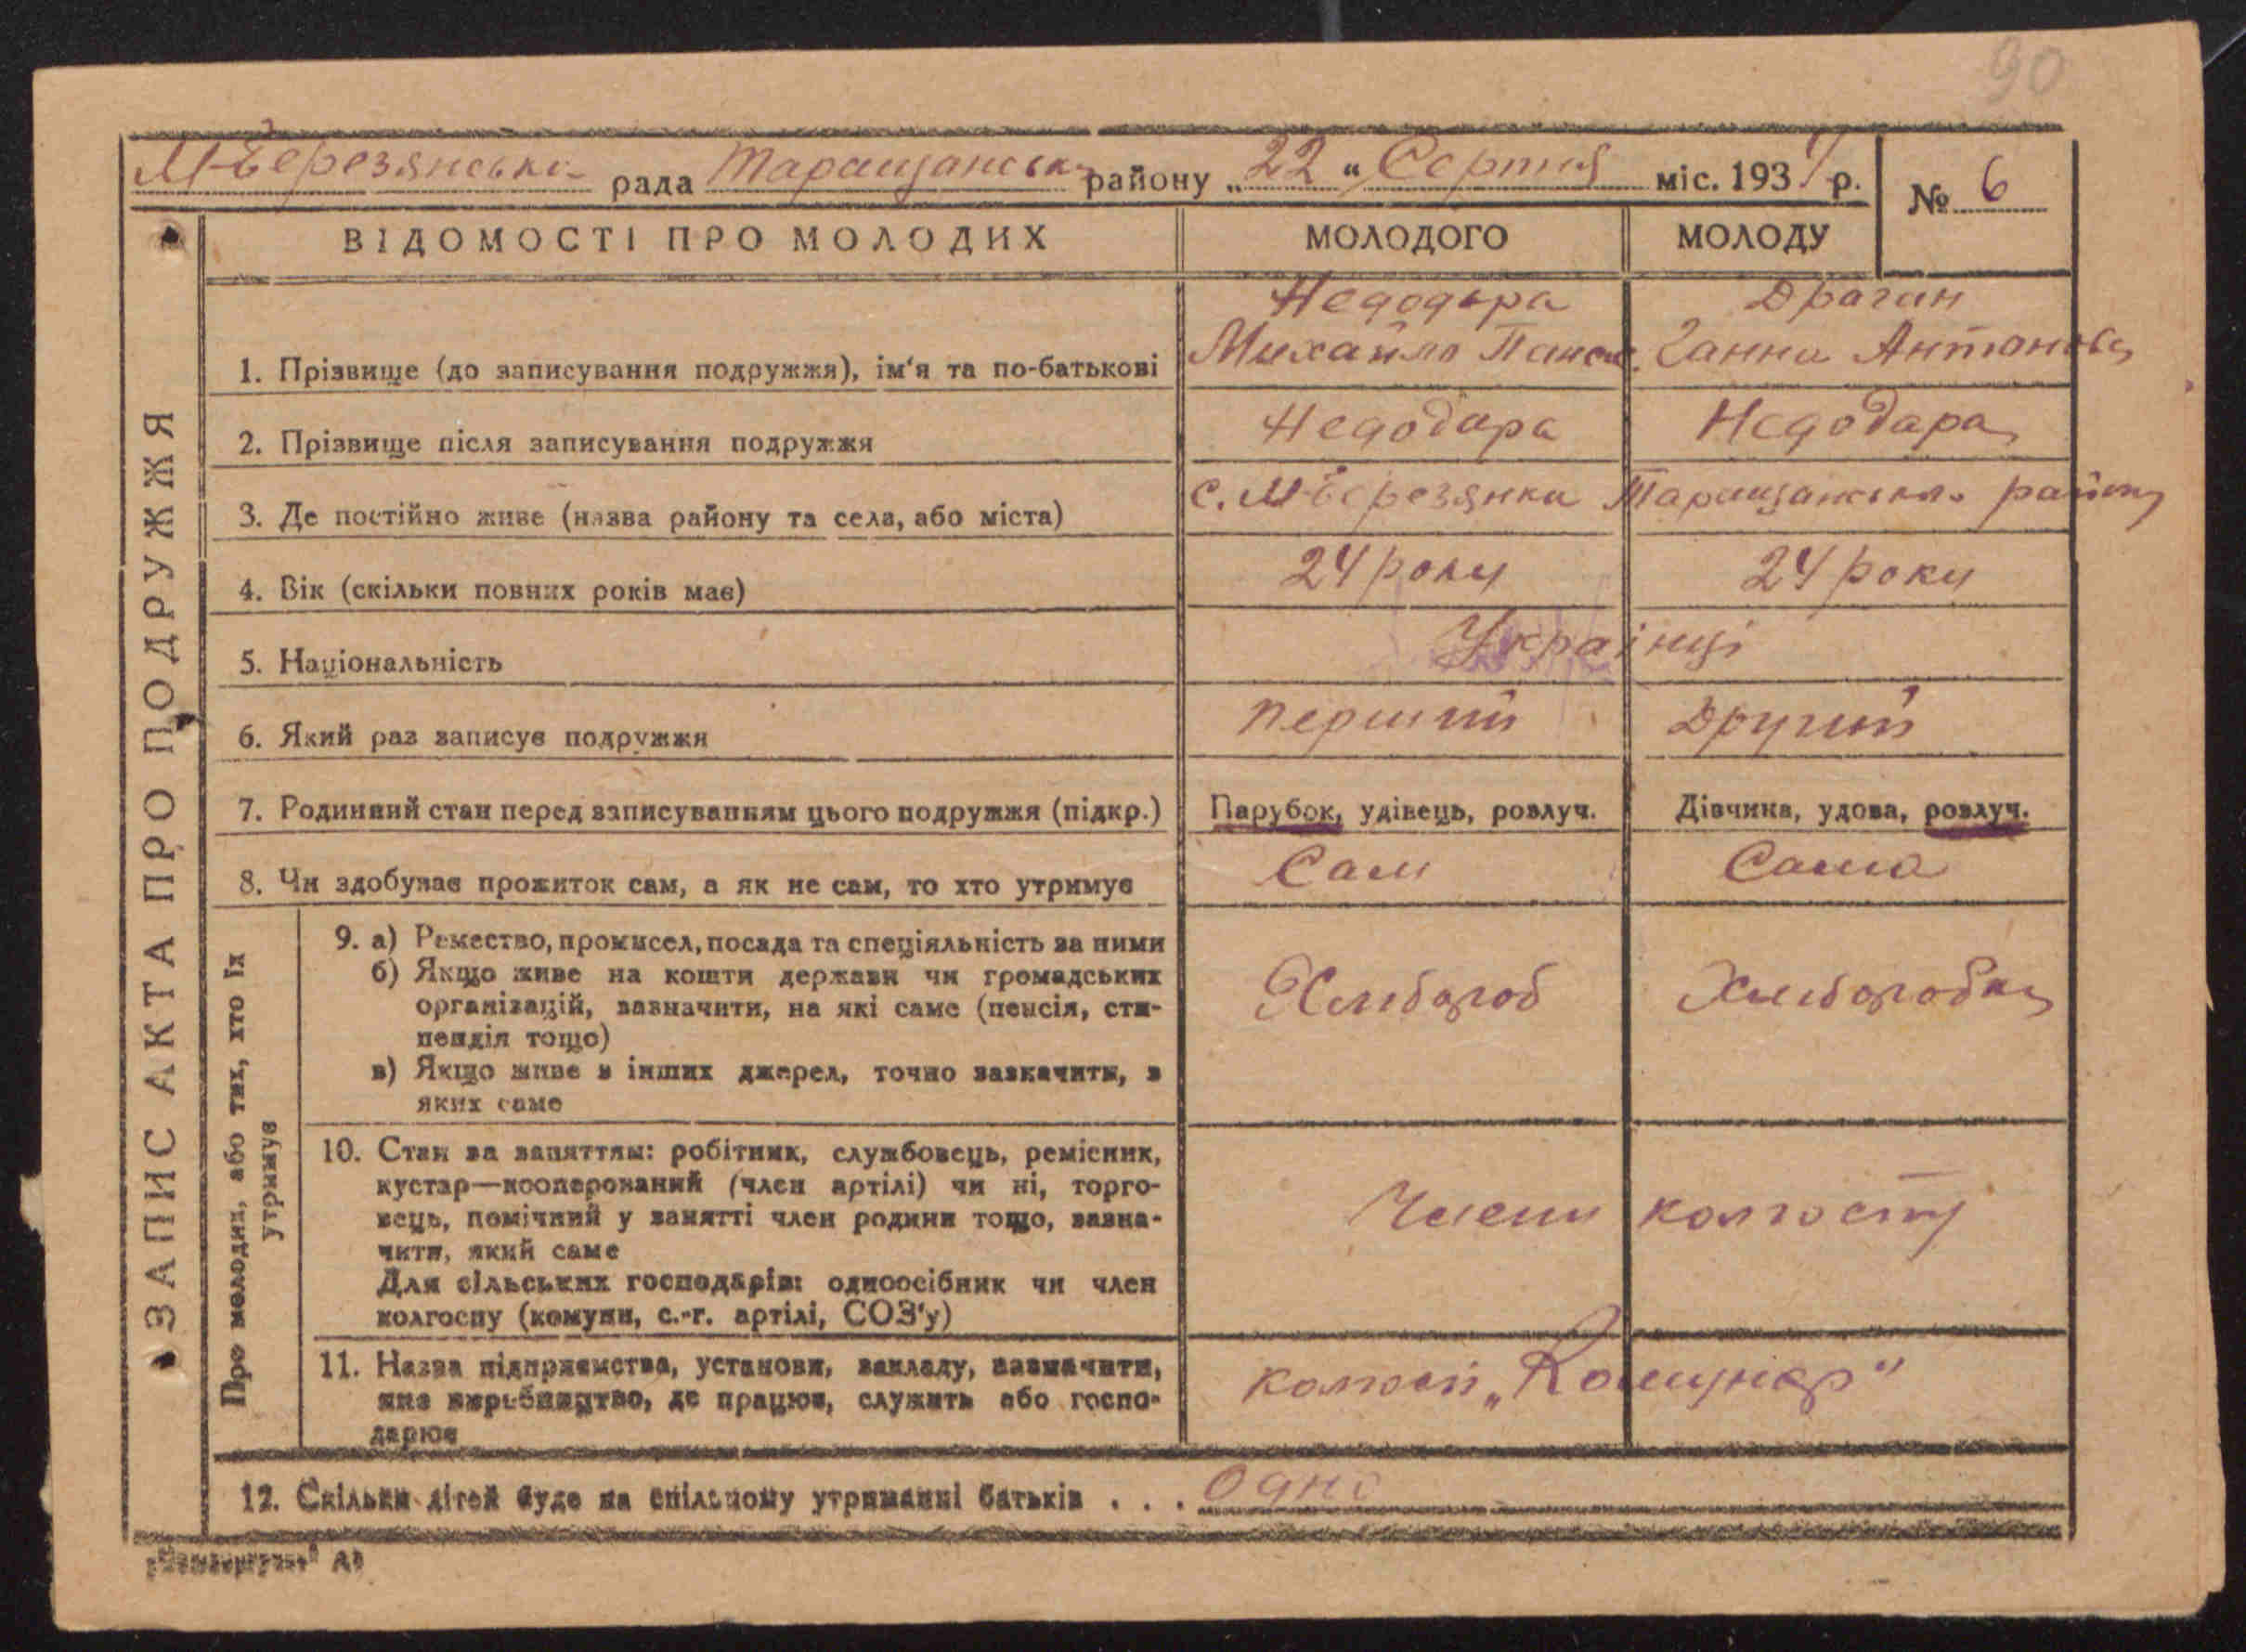 90
М-Березянська рада Таращанськ району „22“ Серпня міс. 193 р. № 6
ВІДОМОСТІ ПРО МОЛОДИХ МОЛОДОГО МОЛОДУ
Недодара Драган
1. Прізвище (до записування подружжя), ім'я та по-батькові Михайло Ганна Антонова
2. Прізвище після записування подружжя Недодара Недодара
3. Де постійно живе (назва району та села, або міста) с. М-Березянка Таращанськ. району
4. Вік (скільки повних років має) 24 роки 24 роки
5. Національність Українці
6. Який раз записує подружжя перший Другий
7. Родинний стан перед записуванням цього подружжя (підкр.) Парубок, удівець, розлуч. Дівчина, удова, розлуч.
8. Чи здобуває прожиток сам, а як не сам, то хто утримує Сам Сама
9. а) Ремество, промисел, посада та спеціяльність за ними
б) Якщо живе на кошти держави чи громадських
організацій, зазначити, на які саме (пенсія, сти-
пендія тощо)
в) Якщо живе з інших джерел, точно зазначити, з
яких саме
Хлібороб Хліборобка
10. Стан за заняттям: робітник, службовець, ремісник,
кустар—кооперований (член артілі) чи ні, торго-
вець, помічний у занятті член родини тощо, зазна-
чити, який саме
Для сільських господарів: одноосібник чи член
колгоспу (комуни, с.-г. артілі, СОЗ'у)
Члени колгоспу
11. Назва підприємства, установи, закладу, зазначити,
яке виробництво, де працює, служить або госпо-
дарює
колгосп „Комунар“
12. Скільки дітей буде на спільному утриманні батьків . . . Одно
ЗАПИС АКТА ПРО ПОДРУЖЖЯ
Про молодих, або тих, хто їх
утримує